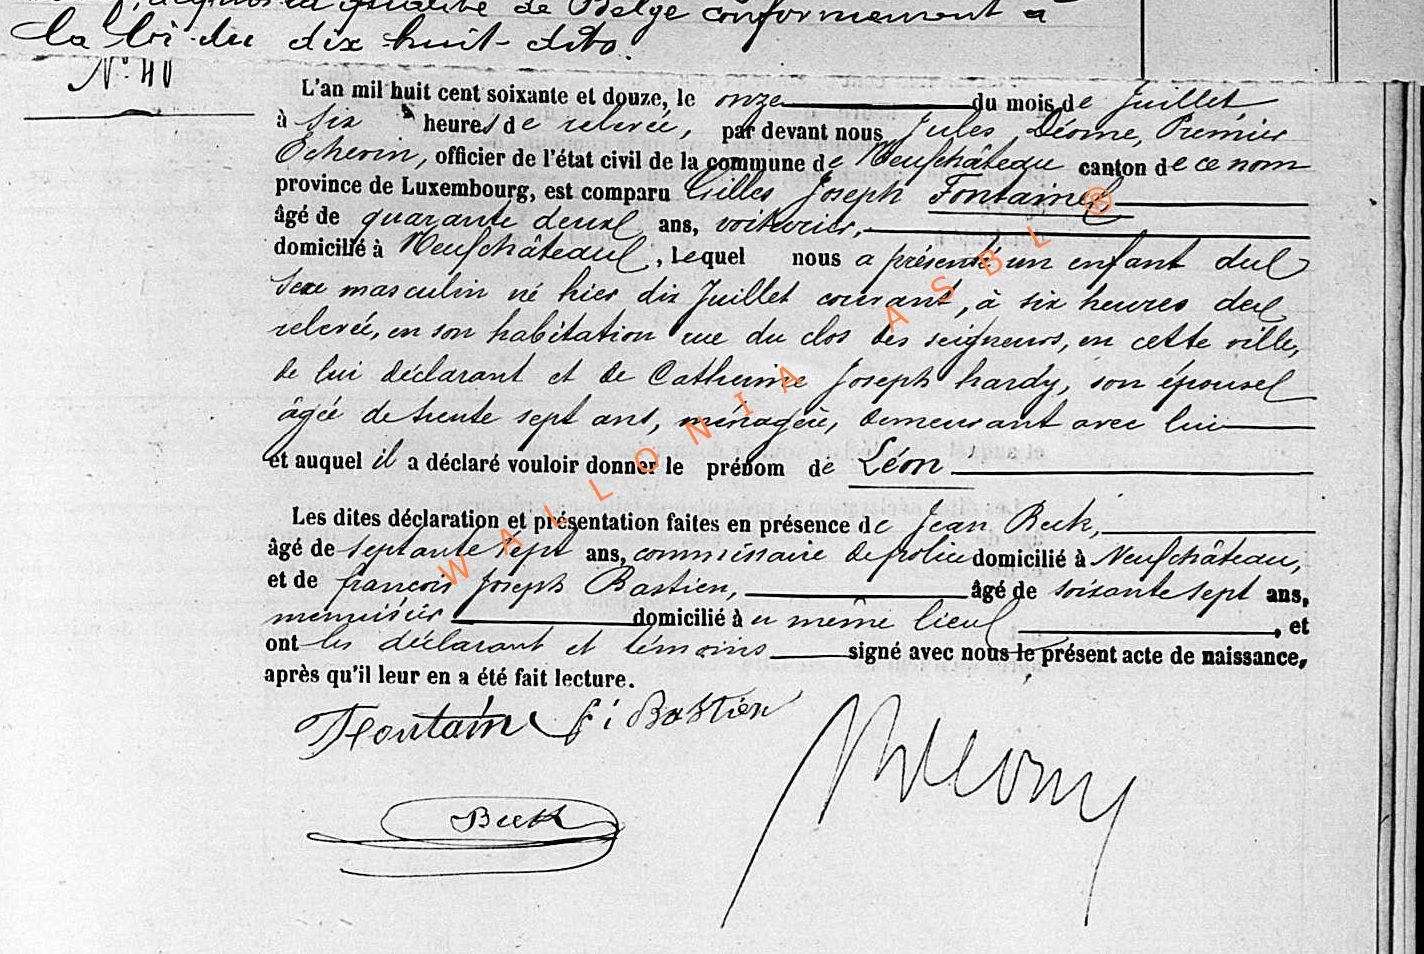 qualité de Belge conformément à
la loi du dix huit dito.
N° 40
L'an mil huit cent soixante et douze, le onze du mois de Juillet
à six heures de relevée, par devant nous Jules Déome, Premier
Echevin, officier de l'état civil de la commune de Neufchâteau canton de ce nom
province de Luxembourg, est comparu Gilles Joseph Fontaine
âgé de quarante deux ans, voiturier,
domicilié à Neufchâteau, Lequel nous a présenté un enfant du
sexe masculin né hier dix Juillet courant, à six heures de
relevée, en son habitation rue du clos des seigneurs, en cette ville,
de lui déclarant et de Catherine Joseph hardy, son épouse
âgée de trente sept ans, ménagère, demeurant avec lui
et auquel il a déclaré vouloir donner le prénom de Léon
Les dites déclaration et présentation faites en présence de Jean Beck,
âgé de septante sept ans, commissaire de police domicilié à Neufchâteau,
et de françois Joseph Bastien, âgé de soixante sept ans,
menuisier domicilié à u même lieu, et
ont les déclarant et témoins signé avec nous le présent acte de naissance,
après qu'il leur en a été fait lecture.
Fontain f i Bastien
Beck
WALLONIA ASBL ®